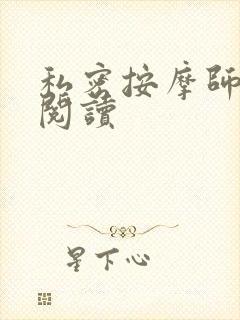 私密按摩師
閱讀
星下心